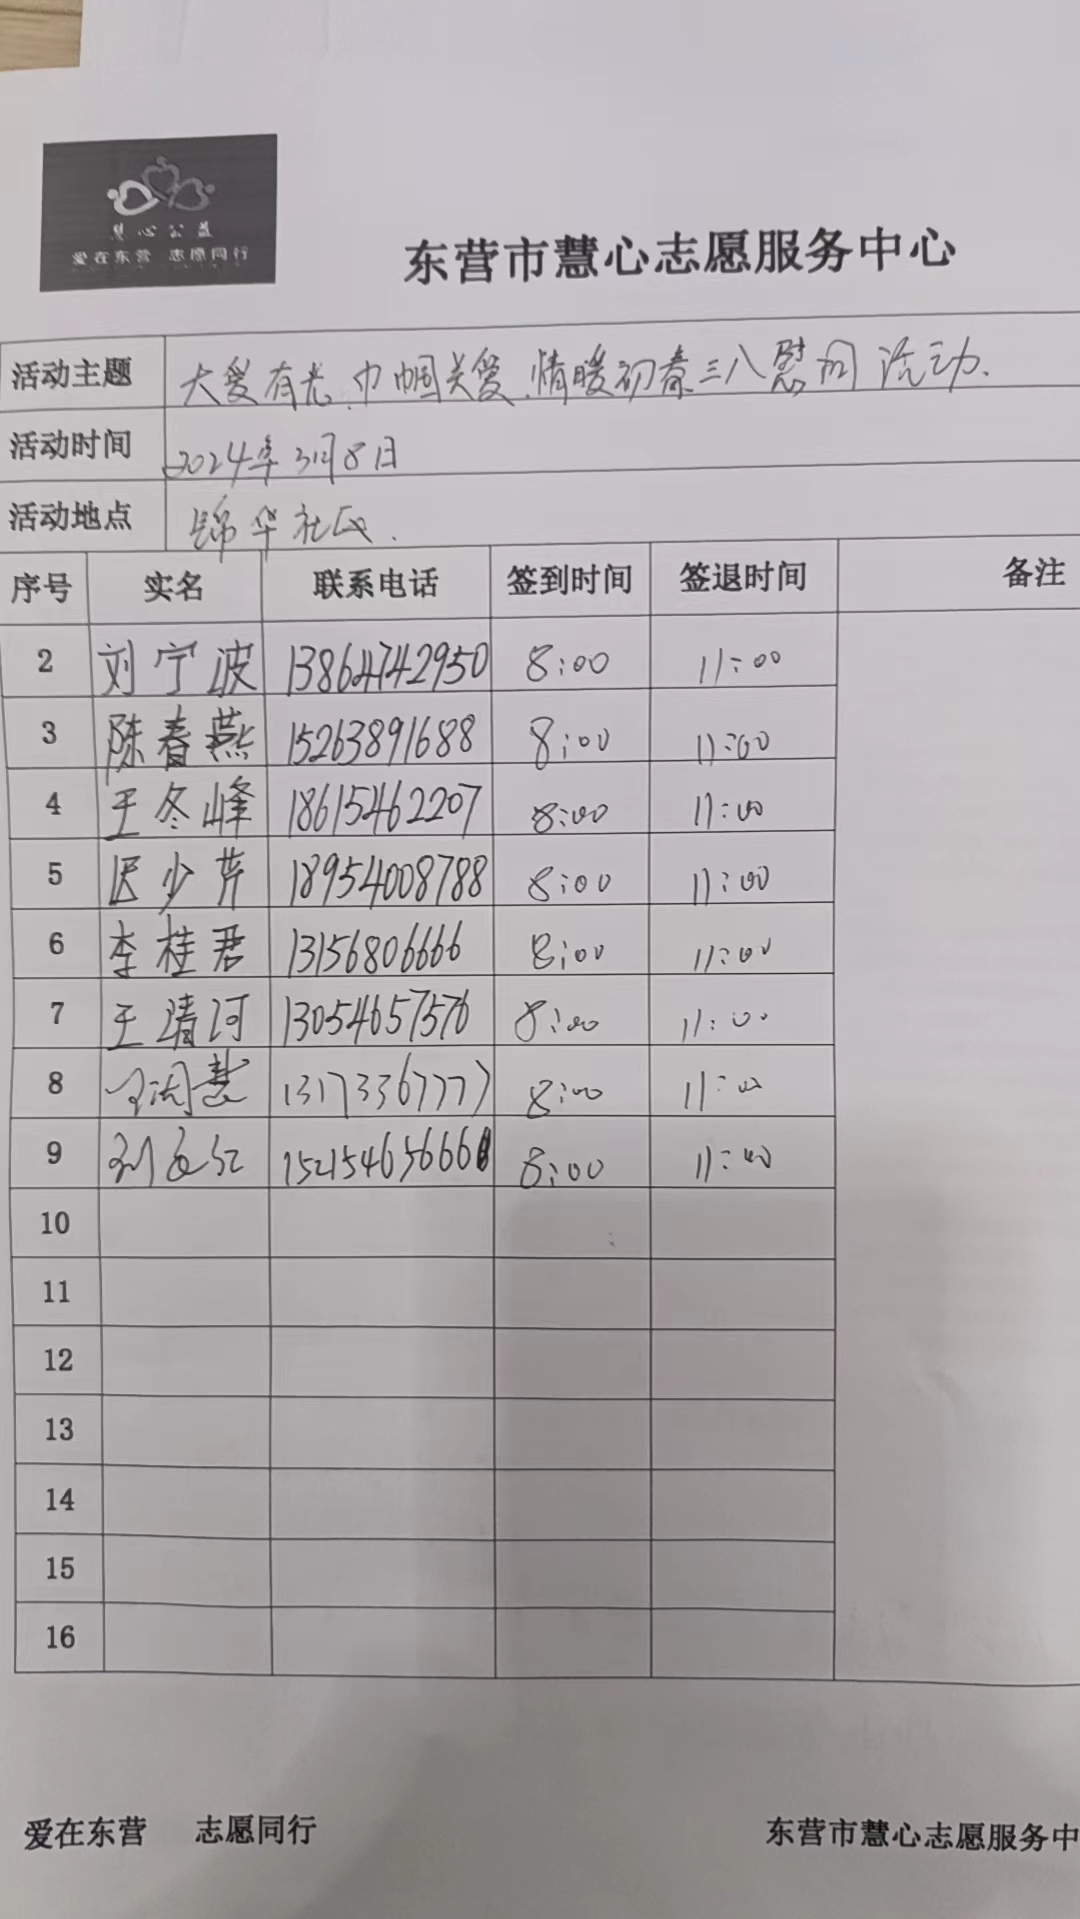 慧心公益
爱在东营 志愿同行
东营市慧心志愿服务中心
活动主题 大爱有光、巾帼关爱、情暖初春三八慰问活动、
活动时间 2024年3月8日
活动地点 锦华社区.
序号 实名 联系电话 签到时间 签退时间 备注
2 刘宁波 13864742950 8:00 11:00
3 陈春燕 15263891688 8:00 11:00
4 王冬峰 18615462207 8:00 11:00
5 迟少芹 18954008788 8:00 11:00
6 李桂君 13156806666 8:00 11:00
7 王清河 13054657576 8:00 11:00
8 13173367777 8:00 11:00
9 8:00 11:00
10
11
12
13
14
15
16
爱在东营 志愿同行 东营市慧心志愿服务中